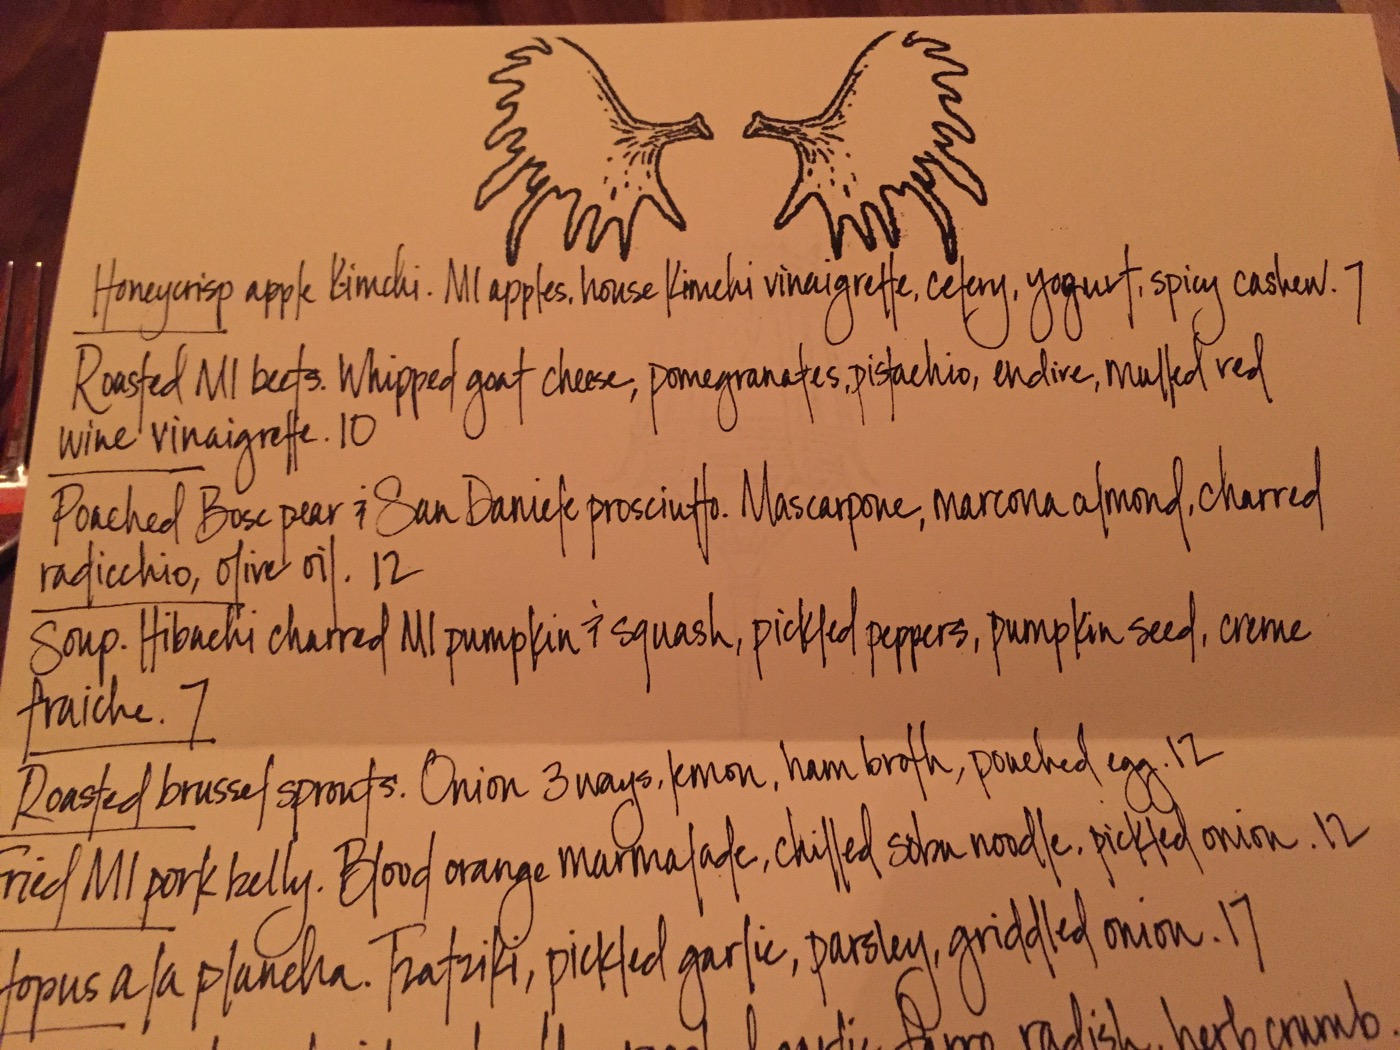 Honeycrisp apple Kimchi. MI apples, house Kimchi vinaigrette, celery, yogurt, spicy cashew. 7
Roasted MI beets. Whipped goat cheese, pomegranates, pistachio, endive, mulled red
wine vinaigrette. 10
Poached Bosc pear & San Daniele prosciutto. Mascarpone, marcona almond, charred
radicchio, olive oil. 12
Soup. Hibachi charred MI pumpkin & squash, pickled peppers, pumpkin seed, creme
fraiche. 7
Roasted brussel sprouts. Onion 3 ways, lemon, ham broth, poached egg. 12
Fried MI pork belly. Blood orange marmalade, chilled soba noodle, pickled onion. 12
topus a la plancha. Tzatziki, pickled garlic, parsley, griddled onion. 17
garlic, farro, radish, herb crumb.